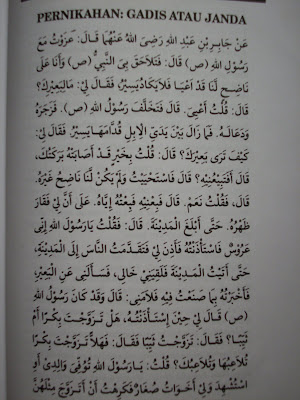 PERNIKAHAN: GADIS ATAU JANDA
عَنْ جَابِرِ بْنِ عَبْدِ اللهِ رَضِيَ اللهُ عَنْهُمَا قَالَ: غَزَوْتُ مَعَ
رَسُوْلِ اللهِ (ص) قَالَ: فَتَلَاحَقَ بِيَ النَّبِيُّ (ص) وَأَنَا عَلَى
نَاضِحٍ لَنَا قَدْ أَعْيَا فَلَا يَكَادُ يَسِيْرُ، فَقَالَ لِيْ: مَا لِبَعِيْرِكَ؟
قَالَ: قُلْتُ أَعْيَى. قَالَ فَتَخَلَّفَ رَسُوْلُ اللهِ (ص). فَزَجَرَهُ
وَدَعَا لَهُ. فَمَا زَالَ بَيْنَ يَدَيِ الْإِبِلِ قُدَّامَهَا يَسِيْرُ. فَقَالَ لِيْ:
كَيْفَ تَرَى بَعِيْرَكَ؟ قَالَ: قُلْتُ بِخَيْرٍ قَدْ أَصَابَتْهُ بَرَكَتُكَ،
قَالَ أَفَتَبِيْعُنِيْهِ؟ قَالَ فَاسْتَحْيَيْتُ وَلَمْ يَكُنْ لَنَا نَاضِحٌ غَيْرُهُ.
قَالَ فَقُلْتُ، نَعَمْ. قَالَ فَبِعْنِيْهِ فَبِعْتُهُ إِيَّاهُ. عَلَى أَنَّ لِيْ فَقَارَ
ظَهْرِهِ. حَتَّى أَبْلُغَ الْمَدِيْنَةَ. قَالَ: فَقُلْتُ يَا رَسُوْلَ اللهِ إِنِّى
عَرُوْسٌ فَاسْتَأْذَنْتُهُ فَأَذِنَ لِيْ فَتَقَدَّمْتُ النَّاسَ إِلَى الْمَدِيْنَةِ،
حَتَّى أَتَيْتُ الْمَدِيْنَةَ فَلَقِيَنِيْ خَالِى، فَسَأَلَنِى عَنِ الْبَعِيْرِ
فَأَخْبَرْتُهُ بِمَا صَنَعْتُ فِيْهِ فَلَامَنِيْ. قَالَ وَقَدْ كَانَ رَسُوْلُ اللهِ
(ص) قَالَ لِيْ حِيْنَ اسْتَأْذَنْتُهُ، هَلْ تَزَوَّجْتَ بِكْرًا أَمْ
ثَيِّبًا؟ فَقَالَ: تَزَوَّجْتُ ثَيِّبًا؟ فَقَالَ: فَهَلَّا تَزَوَّجْتَ بِكْرًا
تُلَاعِبُهَا وَتُلَاعِبُكَ؟ قُلْتُ: يَا رَسُوْلَ اللهِ تُوُفِّيَ وَالِدِيْ أَوِ
اسْتُشْهِدَ وَلِيْ أَخَوَاتٌ صِغَارٌ فَكَرِهْتُ أَنْ أَتَزَوَّجَ مِثْلَهُنَّ